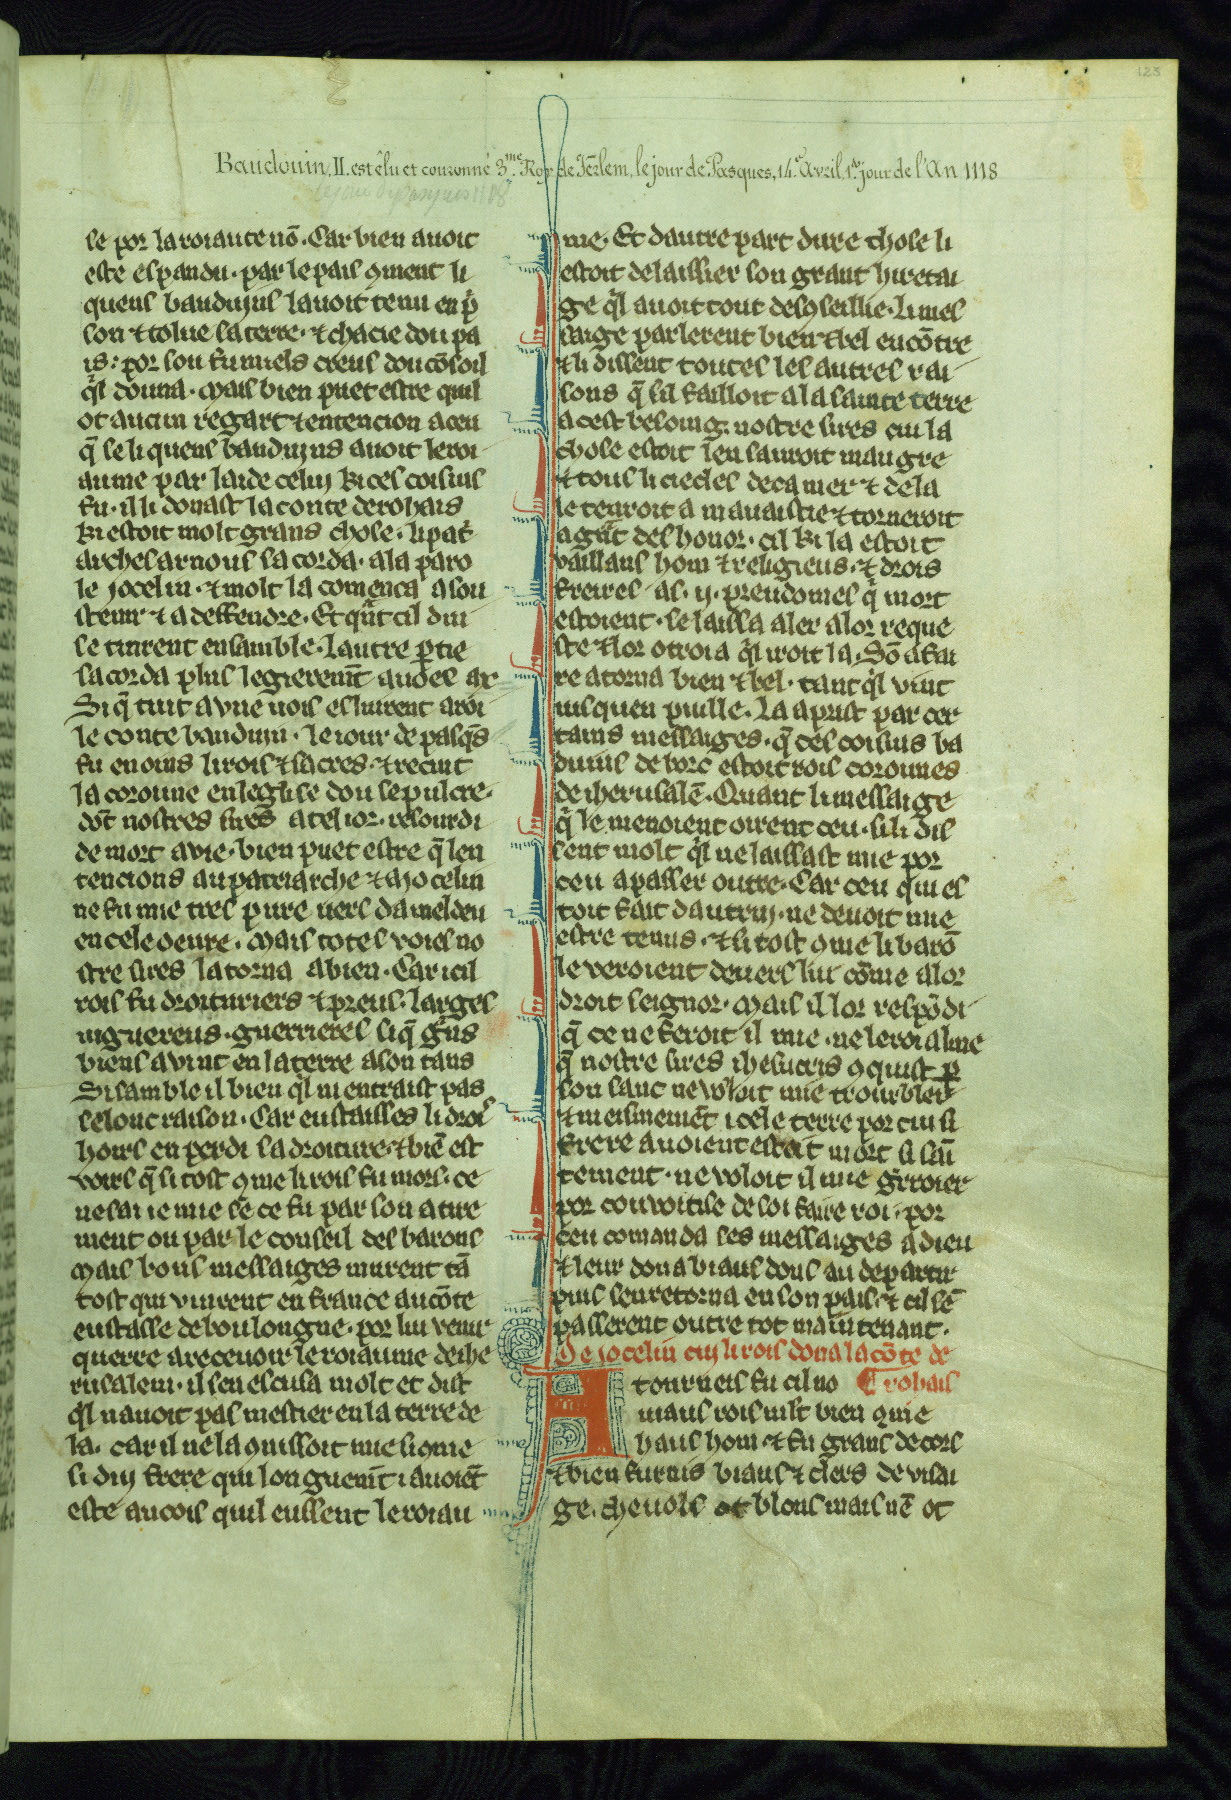 123
Baudouin, II. est élu et couronné 3.me Roy de Jérlem, le jour de Pasques, 14.e Avril, 1.er jour de l'An 1118
le por la roiaute nō. Car bien auoit
este espandu. par le pais 9ment li
quens bauduyns lauoit tenu en p̄
son ⁊ tolue sa terre. ⁊ chacie dou pa
is: por son fu miels creus dou cōsoil
q̄l douna. Mais bien puet estre quil
ot aucun regart ⁊ entencion a ceu
q̄ se li quens bauduyns auoit le roi
aume par laide celuy ki ces coisins
fu. il li donast la conte de rohais
ki estoit molt grans chose. li pat̄
arches arnous sa corda. a la paro
le jocelin. ⁊ molt la comenca a sou
stenir ⁊ a deffendre. Et q̄nt cil dui
se tinrent ensamble. lautre p̄tie
sacorda plus legierem̄t auoec ax
Si q̄ tuit a vne uois eslurent a roi
le conte bauduin. le iour de pasq̄s
fu enoins li rois ⁊ sacres. ⁊ recut
la coroune en leglise dou sepulcre.
dōt nostres sires a cel ior. resourdi
de mort a vie. bien puet estre q̄ len
tencions au patriarche ⁊ a jocelin
ne fu mie tres pure uers dameldeu
en cele oeure. Mais totes voies no
stre sires la torna a bien. Car icil
rois fu droituriers ⁊ preus. larges
uiguereus. guerrieres si q̄ grns
biens auint en la terre a son tans
Si samble il bien q̄l ni entraist pas
selonc raison. Car eustaisses li drois
hoirs en perdi sa droiture. ⁊ biē est
voirs q̄ si tost 9me li rois fu mors. ce
ne sai ie mie se ce fu par son atire
ment ou par le conseil des barons
Mais bons messaiges murent tā
tost qui vinrent en france au cōte
eustasse de boulongne. por lui venir
querre a receuoir le roiaume de ihe
rusalem. il sen escusa molt et dist
q̄l nauoit pas mestier en la terre de
la. car il ne la 9nissoit mie si 9me
si duy frere qui longuem̄t i auoiēt
este ancois quil eussent le roiau
me. Et dautre part dure chose li
estoit de laissier son grant hiretai
ge q̄l auoit tout des9seillie. Li mes
saige parlerent bien ⁊ bel encōtre
⁊ li dissent toutes les autres rai
sons q̄ sil failloit a la sainte terre
a cest besoing. nostre sires cui la
chose estoit len sauroit maugre
⁊ tous li siecles deca mer ⁊ de la
le tenroit a mauaistie ⁊ torneroit
a grāt deshonor. cil ki la estoit
vaillans hom ⁊ religieus. ⁊ drois
freires as .ij. preudomes q̄ mort
estoient. se laissa aler a lor reque
ste ⁊ lor otroia q̄l iroit la. Sō afai
re atorna bien ⁊ bel. tant q̄l vint
iusquen puille. La aprist par cer
tains messaiges. q̄ ces coisins ba
duins de borc estoit rois corounes
de iherusalē. Quant li messaige
q̄ le menoient oirent ceu. si li dis
sent molt q̄l ne laissast mie por
ceu a passer outre. Car ceu qui es
toit fait dautruy. ne deuoit mie
estre tenus. ⁊ si tost 9me li barō
le veroient deuers lui cōme a lor
droit seignor. Mais il lor respōdi
q̄ ce ne feroit il mie. ne le roialme
q̄ nostre sires ihesucris 9quist p̄
son sanc ne voloit mie troubler
⁊ meismemēt icele terre por cui si
frere auoient estoit mort si sai
tement. ne voloit il mie grroier
por couoitise de soi faire roi. por
ceu comanda ses messaiges a dieu
⁊ leur dona biaus dons au departir
puis sen retorna en son pais. ⁊ cil sē
passerent outre tot maintenant.
De jocelin cuy li rois dona la cōte de
rohais
A tourneis fu cil no
miaus rois mlt bien 9me
haus hom. ⁊ fu grans de cors
⁊ bien furnis biaus ⁊ clers de visai
ge. cheuols ot blons mais nē ot